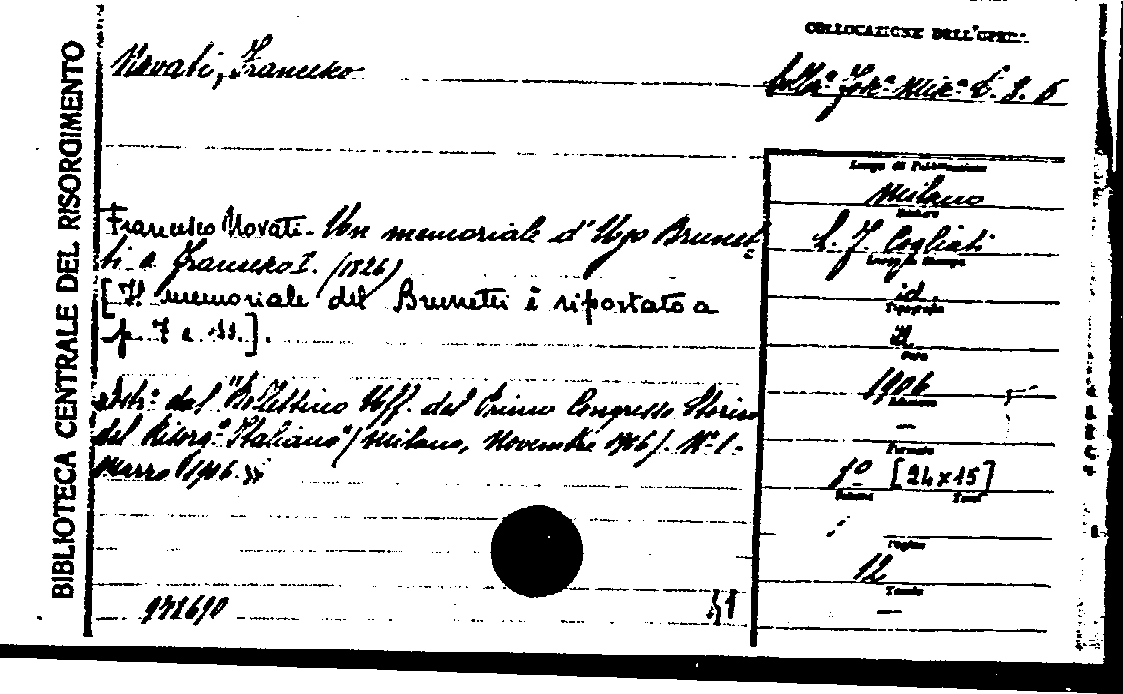 BIBLIOTECA CENTRALE DEL RISORGIMENTO
COLLOCAZIONE DELL'OPERA
Novati, Francesco
6. 8. 6
Luogo di Pubblicazione
Milano
Francesco Novati - Un memoriale d'Ugo Brunet-
L. F. Cogliati
ti a Francesco I. (1826)
Luogo di Stampa
[Il memoriale del Brunetti è riportato a
id.
Tipografia
p. 7 a 11.].
Id.
Data
1906
Estr.º dal "Bollettino Uff. del Primo Congresso Storico
del Risorg.º Italiano" (Milano, Novembre 1906). Nº 1 -
—
Formato
Marzo 1906.»
[24x15]
Volume
Pagine
12
Tavole
—
942690
41